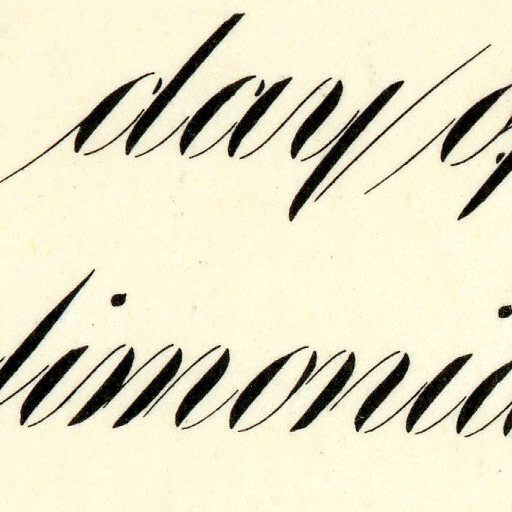 day of
timonia